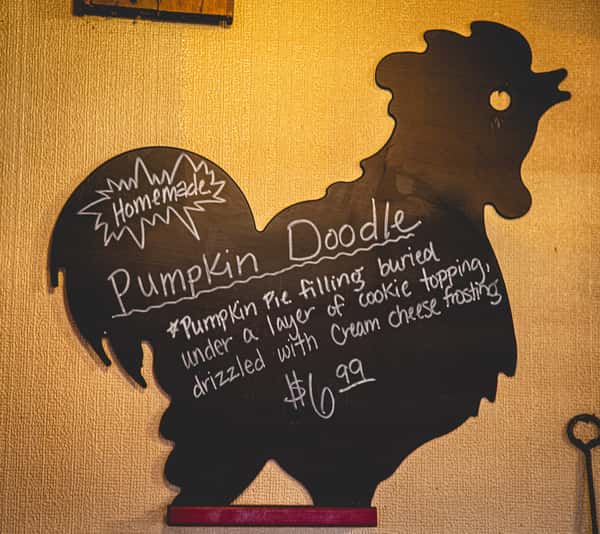 Homemade
Pumpkin Doodle
*Pumpkin Pie filling buried
under a layer of cookie topping,
drizzled with Cream cheese frosting
$6.99